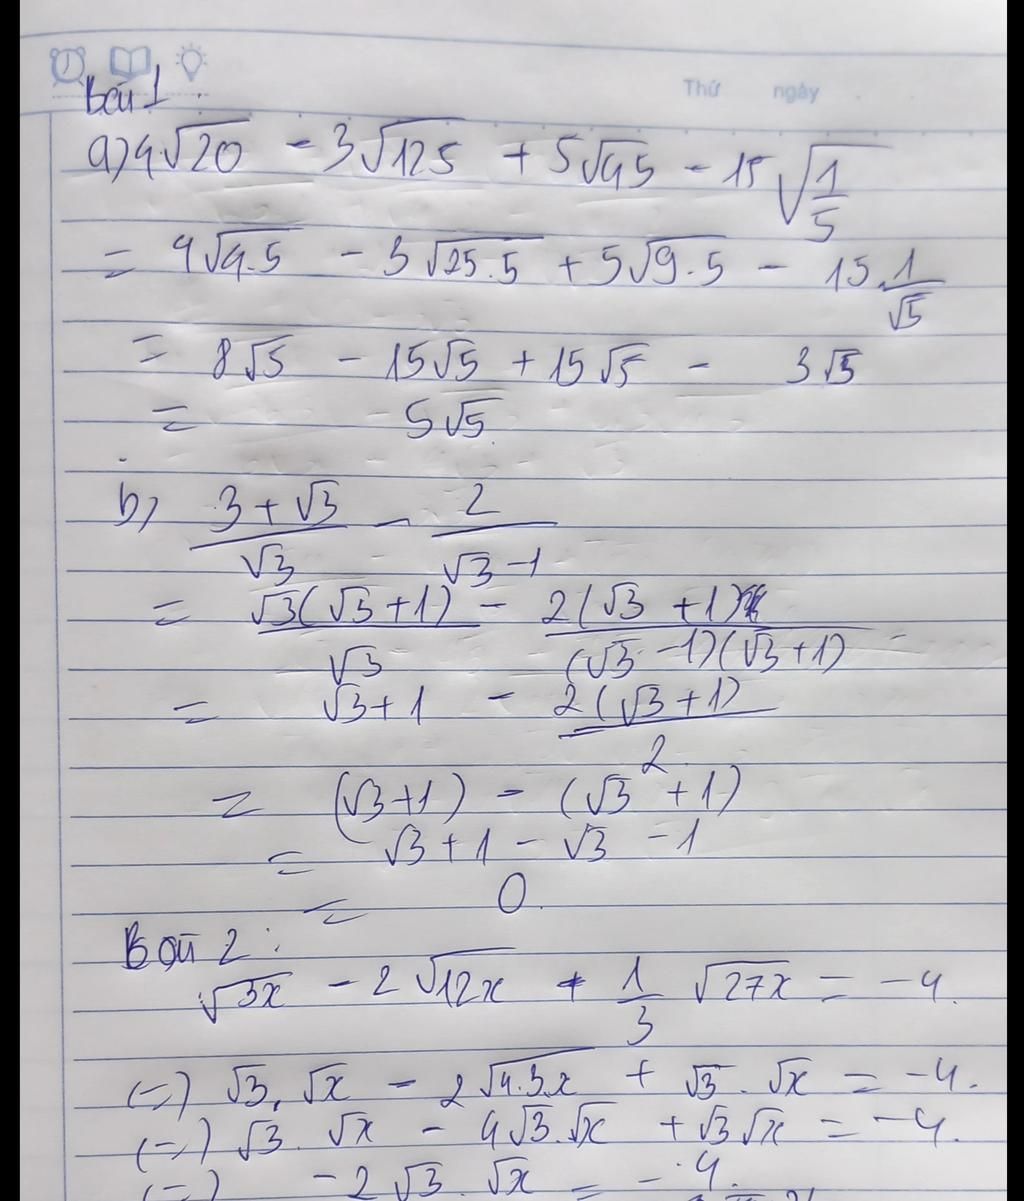 Thứ ngày
Bài 1:
a) 4√20 - 3√125 + 5√45 - 15√(1/5)
= 4√4.5 - 3√25.5 + 5√9.5 - 15.1/√5
= 8√5 - 15√5 + 15√5 - 3√5
= 5√5
b) (3+√3)/√3 - 2/(√3-1)
= √3(√3+1)/√3 - 2(√3+1)/(√3-1)(√3+1)
= √3+1 - 2(√3+1)/2
= (√3+1) - (√3+1)
= √3+1-√3-1
= 0.
Bài 2:
√3x - 2√12x + 1/3 √27x = -4.
(=) √3.√x - 2√4.3.x + √3.√x = -4.
(=) √3.√x - 4√3.√x + √3√x = -4.
(=) -2√3.√x = -4.